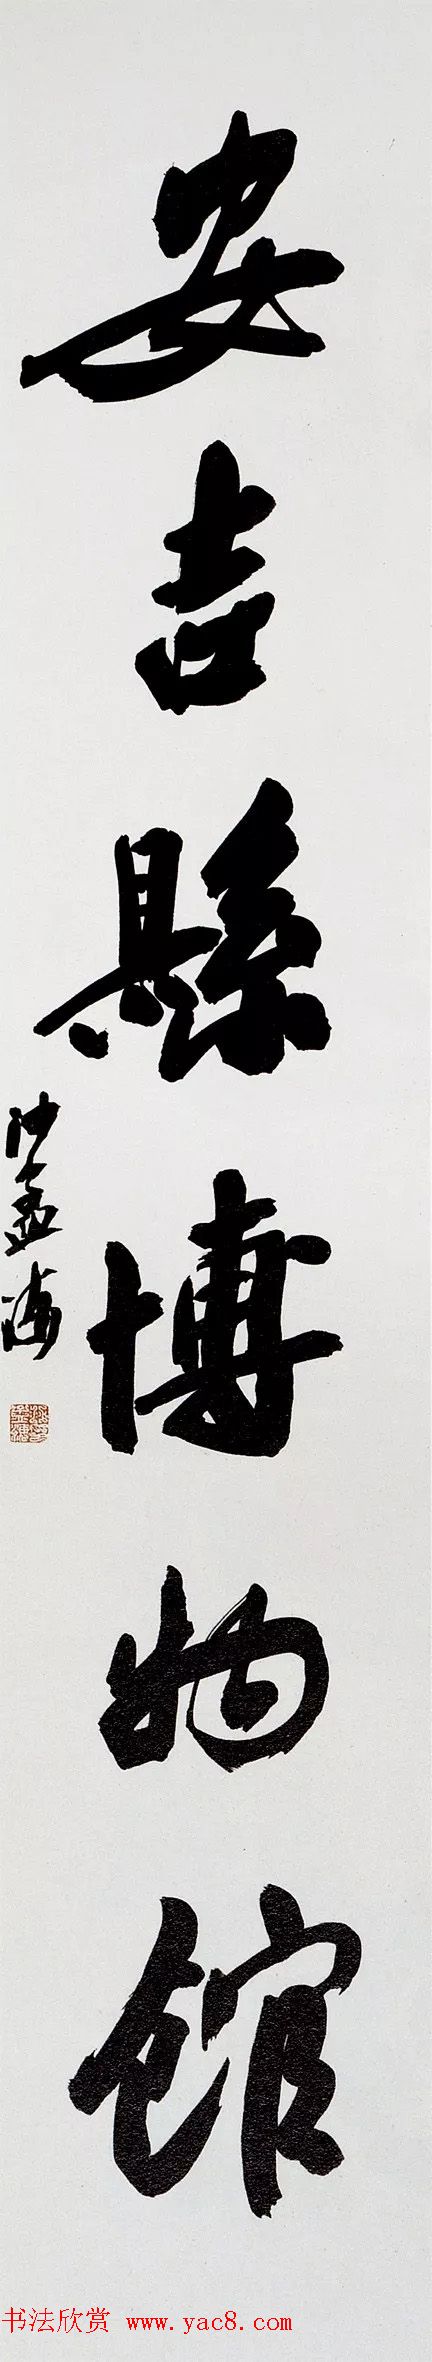 安吉縣博物館
沙孟海
书法欣赏 www.yac8.com